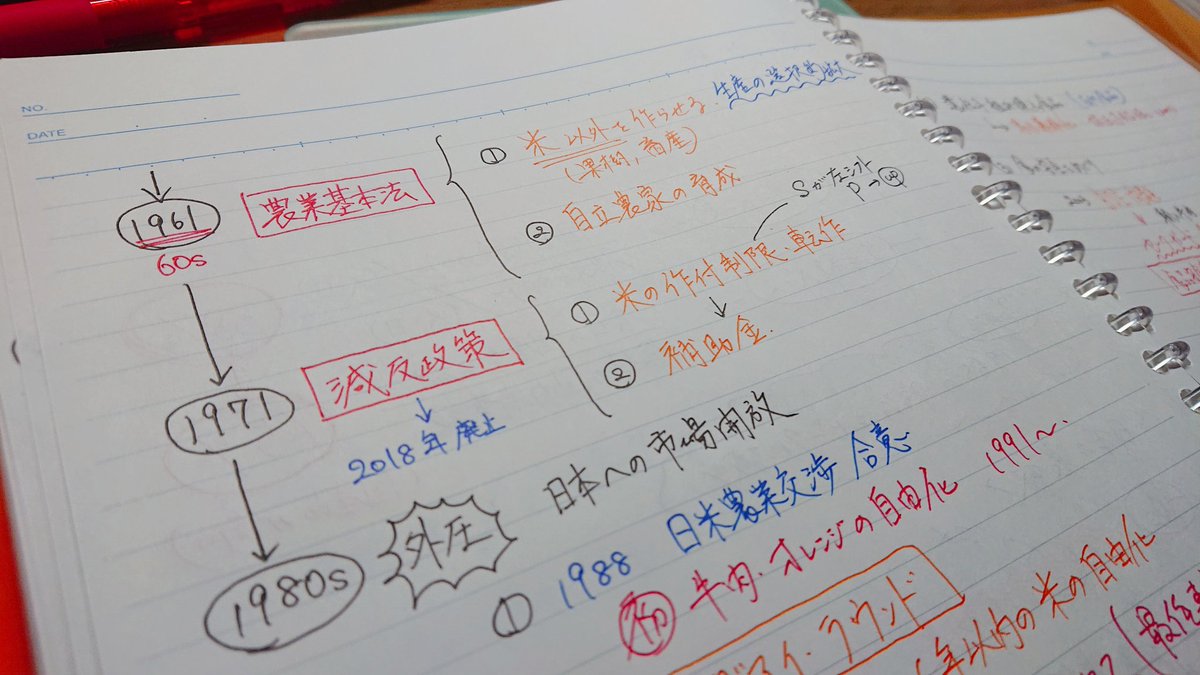 NO.
DATE
1961
60s
農業基本法
① 米以外を作らせる. 生産の選択的拡大
(果樹, 畜産)
② 自立農家の育成
Sが左シフト
P→up
1971
減反政策
2018年廃止
① 米の作付制限・転作
② 補助金.
1980s
外圧
日本への市場開放
① 1988 日米農業交渉 合意
牛肉・オレンジの自由化 1991〜.
ラウンド
年以内の米の自由化